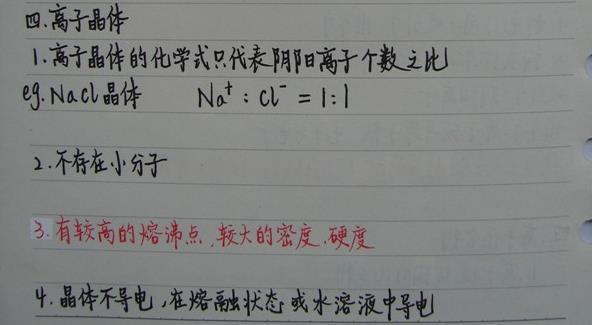 四.离子晶体
1.离子晶体的化学式只代表阴阳离子个数之比
eg.NaCl晶体 Na⁺:Cl⁻=1:1
2.不存在小分子
3.有较高的熔沸点,较大的密度.硬度
4.晶体不导电,在熔融状态或水溶液中导电